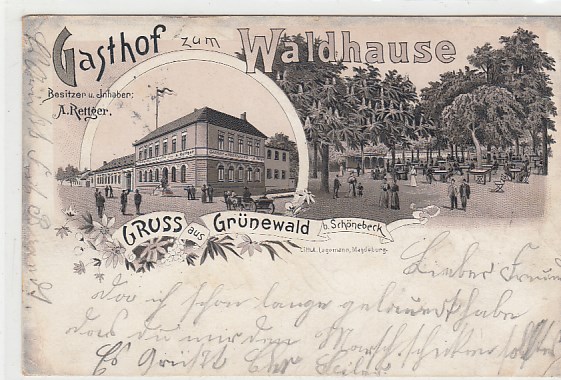 Gasthof zum Waldhause
Besitzer u. Inhaber:
A. Rettger.
GRUSS aus Grünewald
b. Schönebeck
Lith. A. Logemann, Magdeburg.
Lieber Freund
da ich schon lange gelauert habe
das du mir den Marsch schicken solltes
Es Grüßt